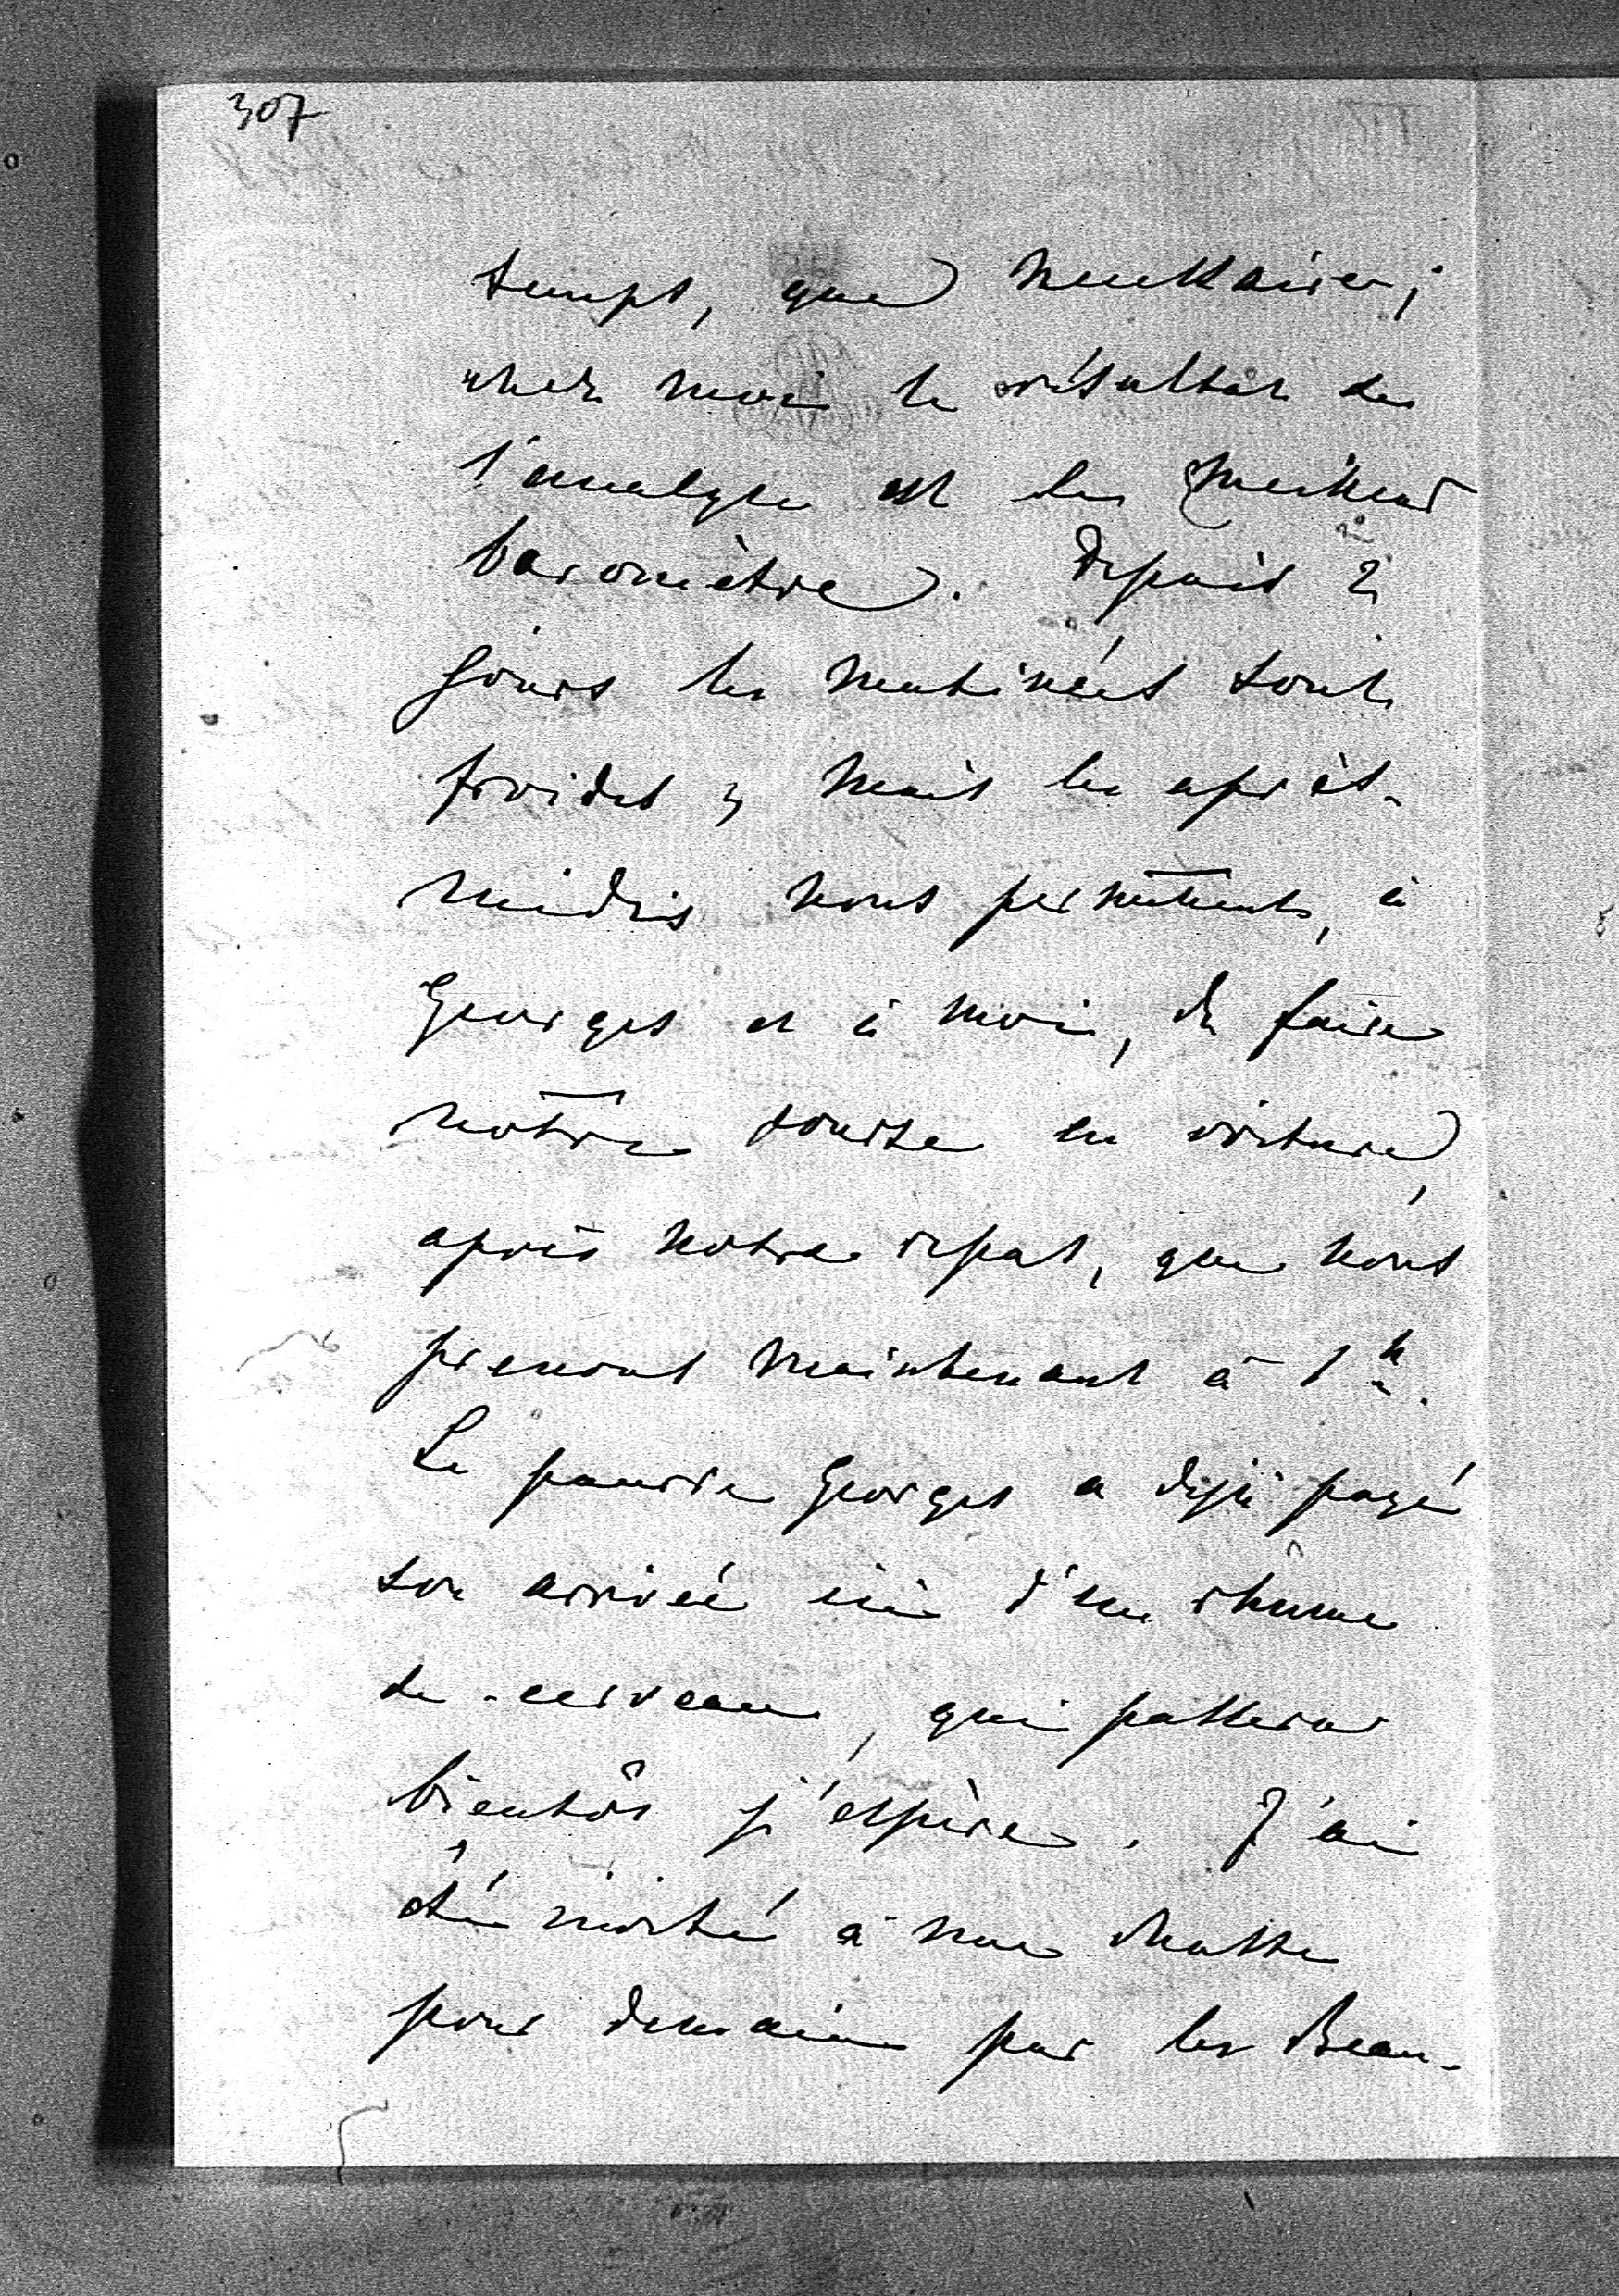 307
temps, que nécessaire;
chez moi le résultat de
l'analyse est le meilleur
baromètre. Depuis 2
jours les matinées sont
froides, mais les après-
midis nous permettent, à
Georges et à moi, de faire
notre course en voiture,
après notre repas, que nous
prenons maintenant à 1 h.
Le pauvre Georges a déjà payé
son arrivée ici d'un rhûme
de cerveau, qui passera
bientôt j'espère. J'ai
été invité à une chasse
pour demain par les Beau-